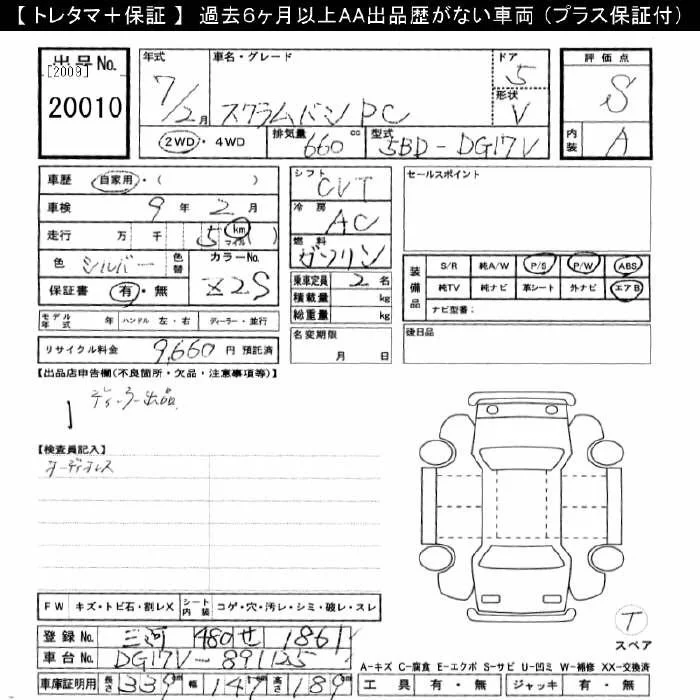 【 トレタマ＋保証 】 過去6ヶ月以上AA出品歴がない車両（プラス保証付）
出品No.
[2009]
20010
年式
7/2月
車名・グレード
スクラムバン PC
ドア
5
形状
V
評価点
S
内装
A
2WD・4WD
排気量
660 cc
型式
5BD-DG17V
車歴 自家用・( )
車検 9年 2月
走行 万 千 5 (km マイル)
色 シルバー 色替 カラーNo.
Z2S
保証書 有・無
モデル年式 年 ハンドル 左・右 ディーラー・並行
リサイクル料金 9,660 円 預託済
シフト
CVT
冷房
AC
燃料
ガソリン
乗車定員 2名
積載量 kg
総重量 kg
名変期限
月 日
セールスポイント
装備品
S/R 純A/W P/S P/W ABS
純TV 純ナビ 革シート 外ナビ エアB
ナビ型番：
後日品
【出品店申告欄(不良箇所・欠品・注意事項等)】
ディーラー出品
【検査員記入】
オーディオレス
FW キズ・トビ石・割レX シート内装 コゲ・穴・汚レ・シミ・破レ・スレ
登録No. 三河 480 せ 1861
車台No. DG17V-891125
車庫証明用 長さ 339 幅 147 高さ 189
T
スペア
A-キズ C-腐食 E-エクボ S-サビ U-凹ミ W-補修 XX-交換済
工具 有・無 ジャッキ 有・無